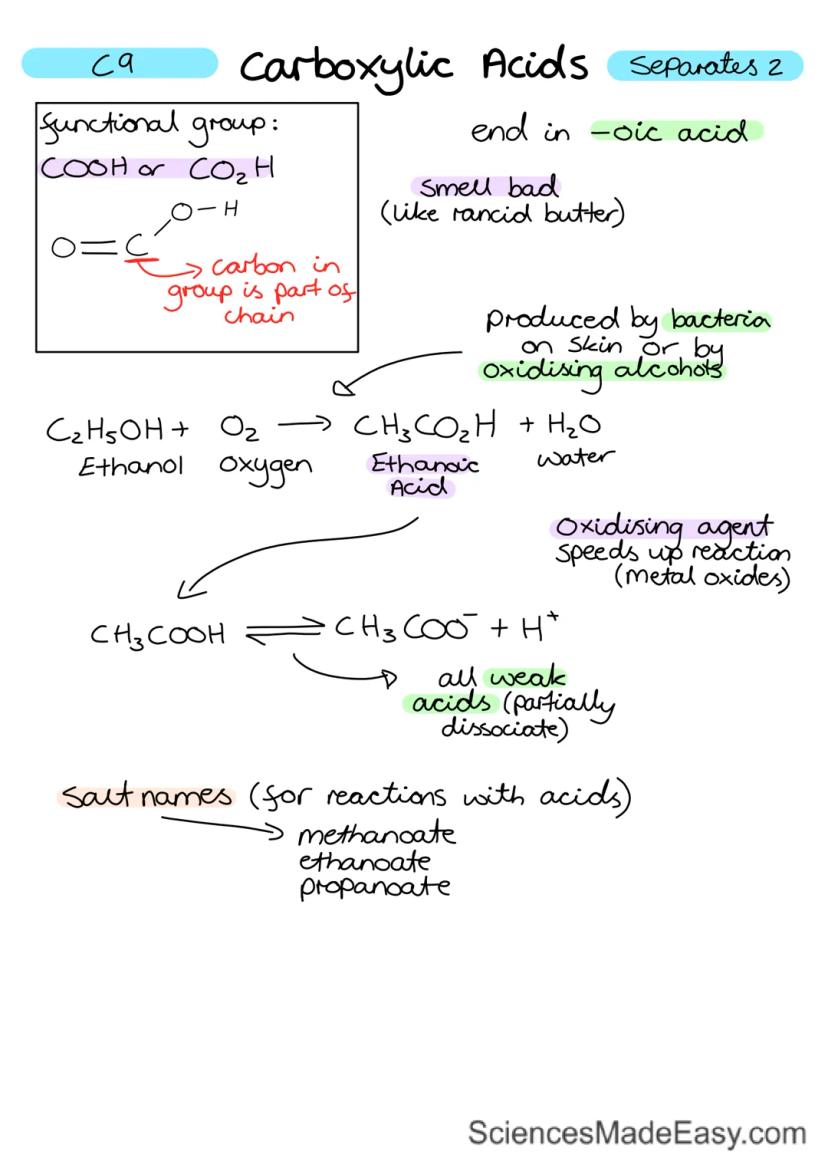 C9
Carboxylic Acids
Separates 2
functional group:
COOH or CO₂H
O-H
O=C
carbon in
group is part of
chain
end in -oic acid
smell bad
(like rancid butter)
produced by bacteria
on skin or by
oxidising alcohols
C₂H₅OH + O₂ → CH₃CO₂H + H₂O
Ethanol oxygen Ethanoic water
Acid
Oxidising agent
speeds up reaction
(metal oxides)
CH₃COOH ⇌ CH₃COO⁻ + H⁺
all weak
acids (partially
dissociate)
Salt names (for reactions with acids)
methanoate
ethanoate
propanoate
SciencesMadeEasy.com